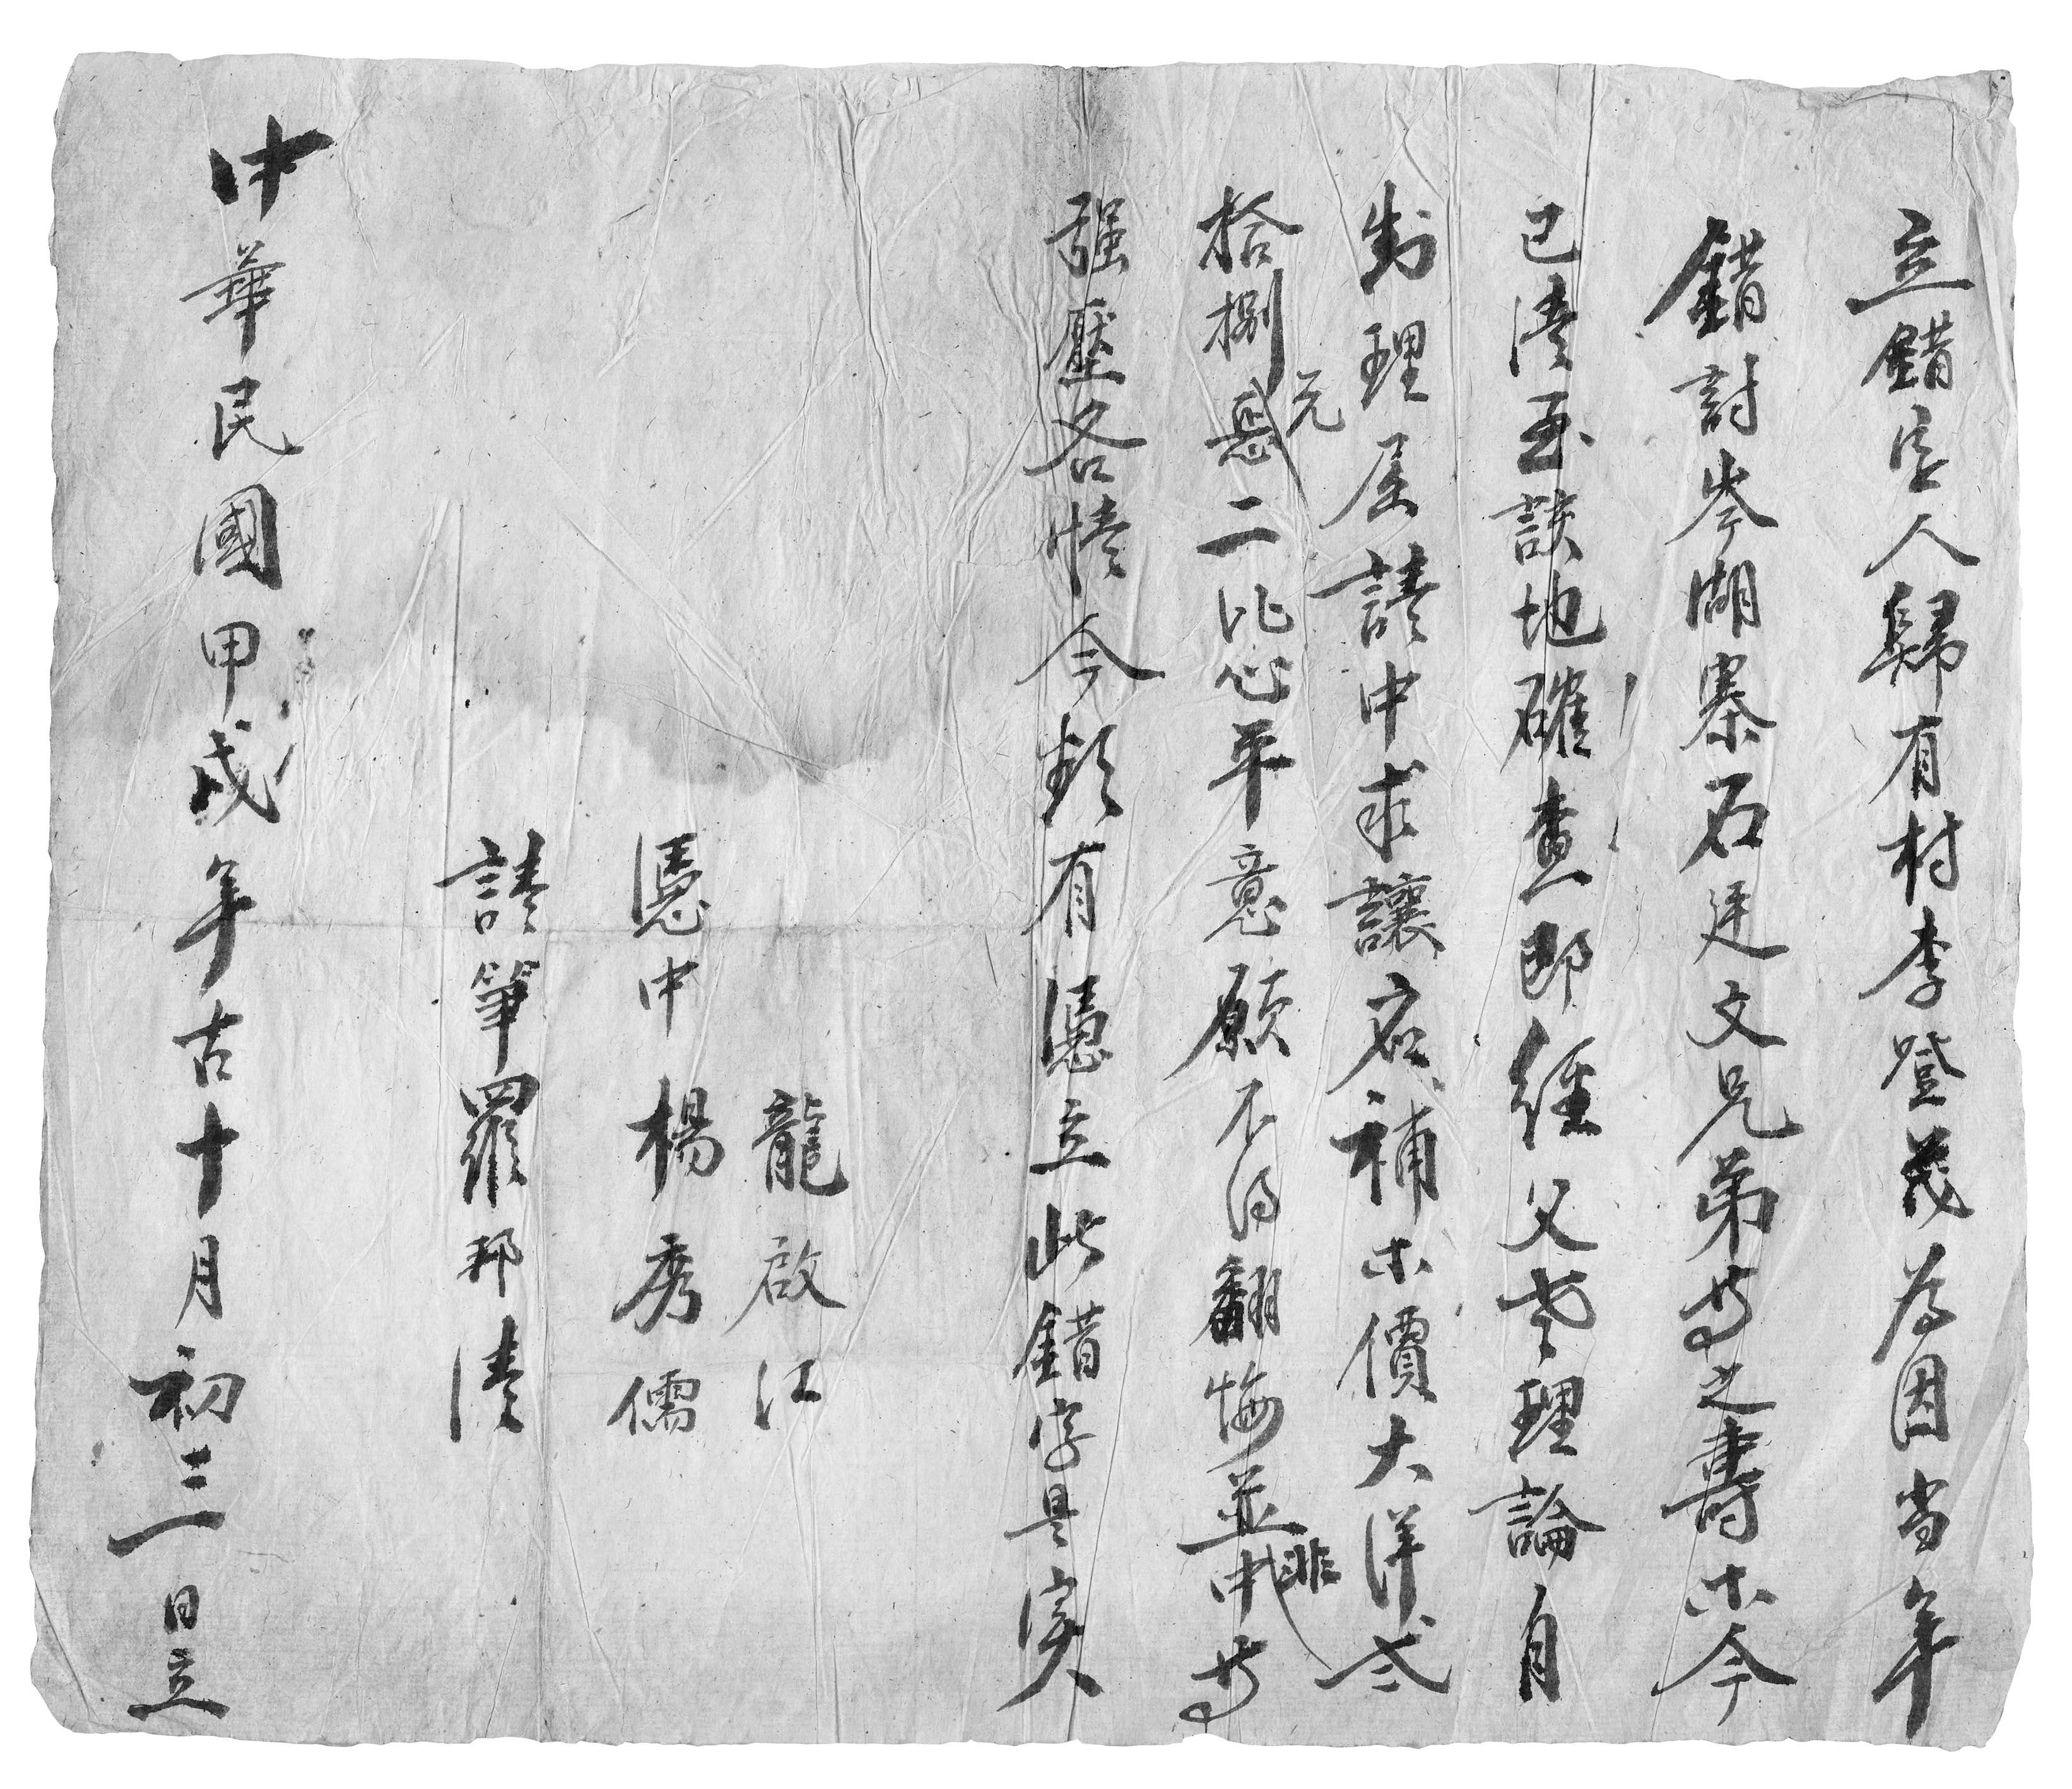 立錯字人歸有村李登茂為因當年
錯討岑湖寨石廷文兄弟等之壽木今
已清至該地確查即經父老理論自
對理屈請中求讓名補木價大洋弍
拾捌元悬二比心平意願不得翻悔並非中等
强壓各情今欲有憑立此錯字是寔
龍啟江
憑中楊秀儒
請筆羅邦清
中華民國甲戌年古十月初三日立